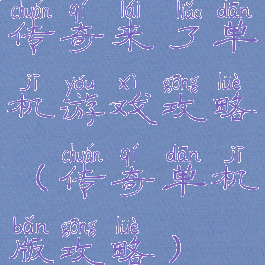 chuán qí lái liǎo dān
传奇来了单
jī yóu xì gōng lüè
机游戏攻略
chuán qí dān jī
（传奇单机
bǎn gōng lüè
版攻略）